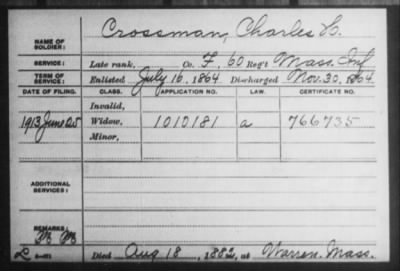 NAME OF SOLDIER: Crossman, Charles C.
SERVICE: Late rank, Co. F, 60 Reg't Mass. Inf
TERM OF SERVICE: Enlisted July 16, 1864 Discharged Nov. 30, 1864
DATE OF FILING. CLASS. APPLICATION NO. LAW. CERTIFICATE NO.
Invalid,
1913 June 25 Widow, 1010181 a 766735
Minor,
ADDITIONAL SERVICES:
REMARKS:
Died Aug 18, 1882, at Warren. Mass.